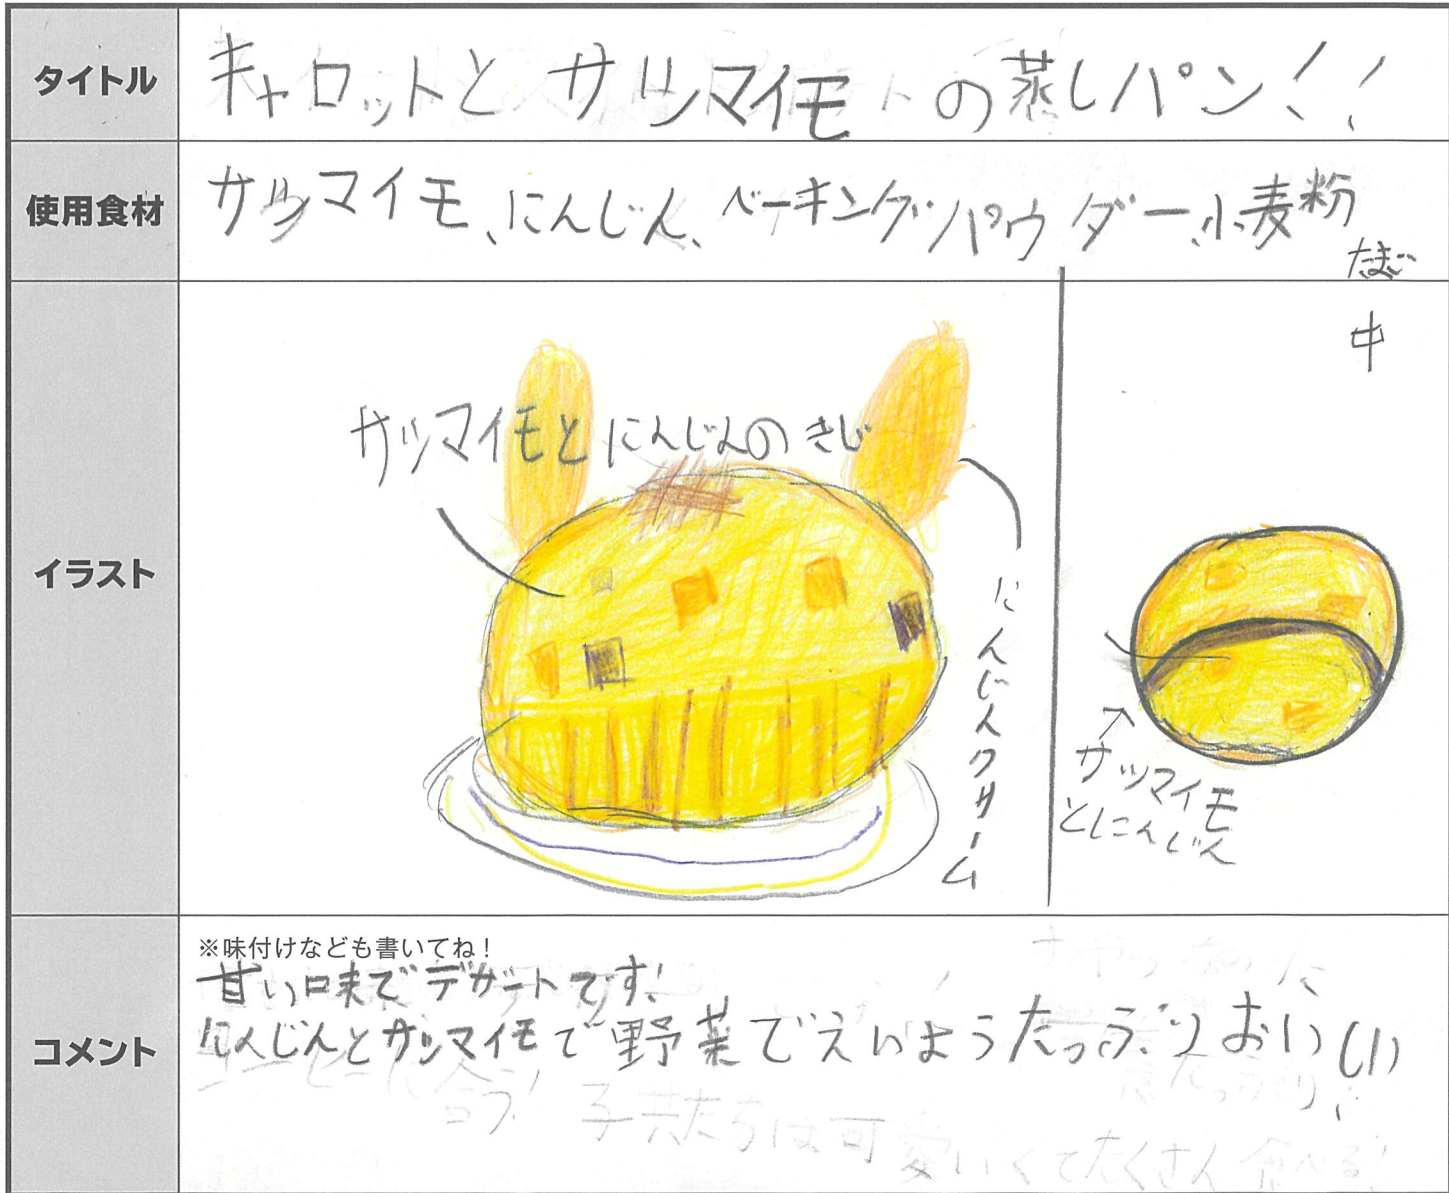 タイトル
キャロットとサツマイモの蒸しパン!!
使用食材
サツマイモ、にんじん、ベーキングパウダー、小麦粉
たまご
イラスト
サツマイモとにんじんのきじ
にんじんクリーム
中
サツマイモ
とにんじん
コメント
※味付けなども書いてね!
甘い味でデザートです!
にんじんとサツマイモで野菜でえいようたっぷりおいしい
子共たちは可愛いくてたくさん食べる!